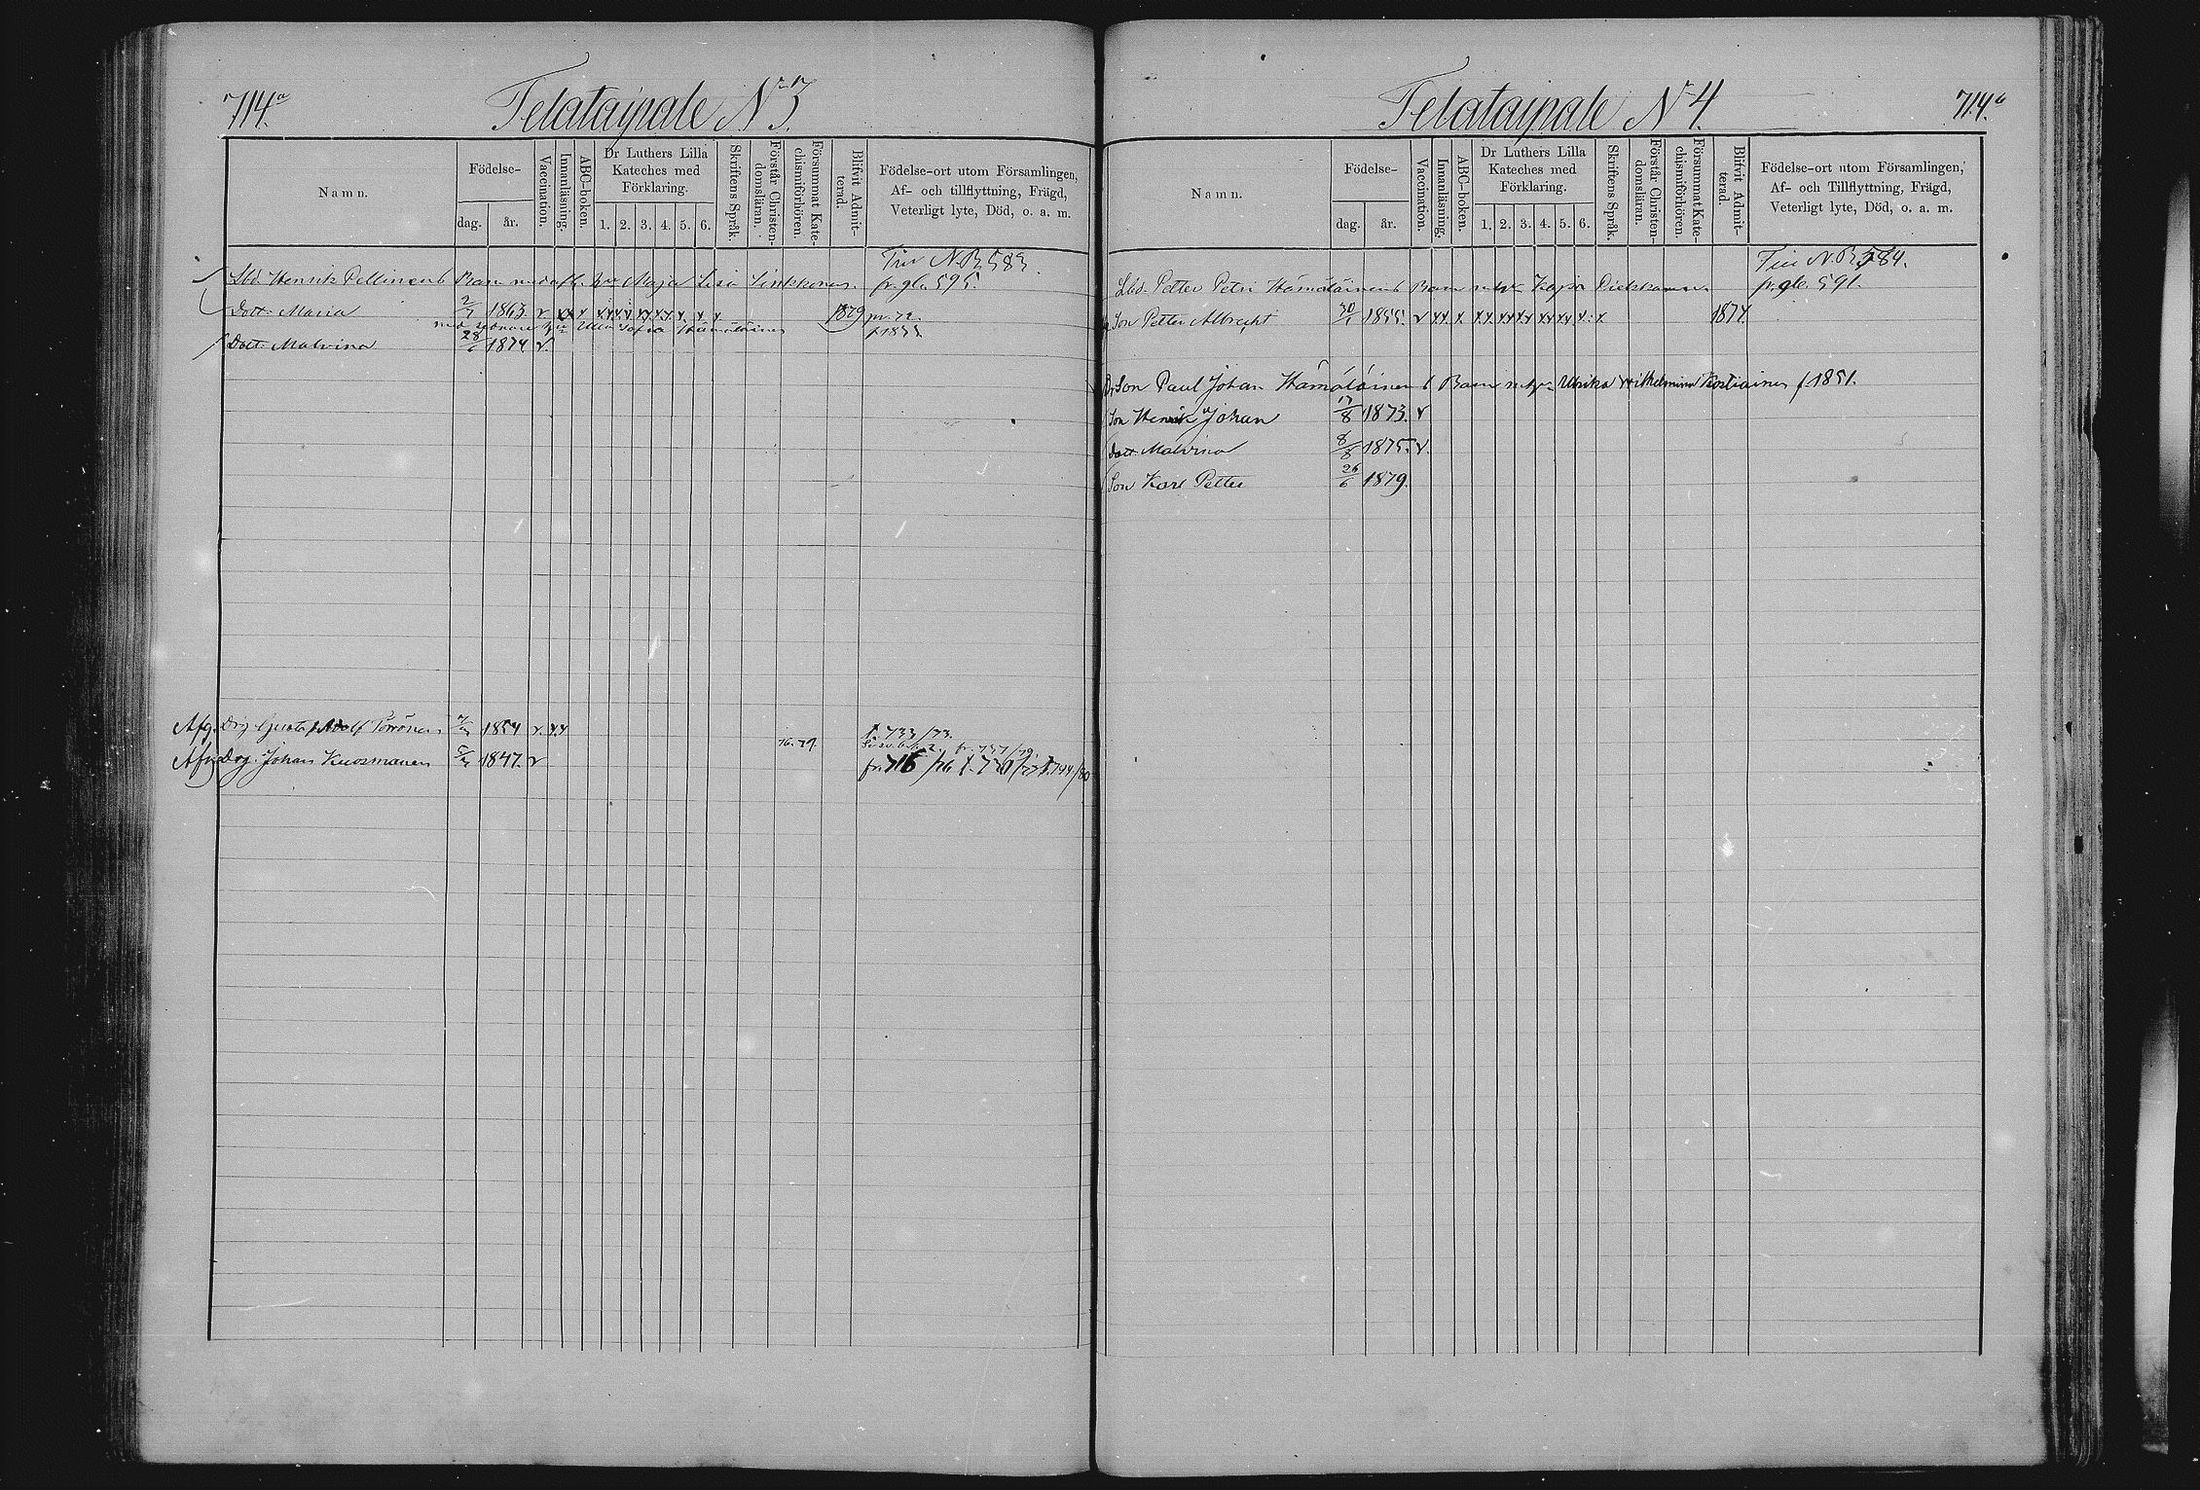 714.a
Telataipale No 3.
Namn.
Födelse-
dag.
år.
Vaccination.
Innanläsning.
ABC-boken.
Dr Luthers Lilla
Kateches med
Förklaring.
1. 2. 3. 4. 5. 6.
Skriftens Språk.
Förstår Christen-
domsläran.
Försummat Kate-
chismiförhören.
Blifvit Admit-
terad.
Födelse-ort utom Församlingen,
Af- och tillflyttning, Frägd,
Veterligt lyte, Död, o. a. m.
N.B. 583.
Lbd. Henrik Pellinens Barn med Maja Lisa Sinkkonen. 595.
Dott. Maria 2/7 1863. v xx x xx xx xx xx x. x x 1879
Ulla Sofia Hämäläinen
Dott. Malvina 28/6 1874 v.
Afg. Drg Gustaf Adolf 1854 v. xx 733/73.
76. 79. 737/79.
Afg. Drg. Johan Kuosmanen 1847. v
Telataipale No 4.
714.
Namn.
Födelse-
dag.
år.
Vaccination.
Innanläsning.
ABC-boken.
Dr Luthers Lilla
Kateches med
Förklaring.
1. 2. 3. 4. 5. 6.
Skriftens Språk.
Förstår Christen-
domsläran.
Försummat Kate-
chismiförhören.
Blifvit Admit-
terad.
Födelse-ort utom Församlingen,
Af- och Tillflyttning, Frägd,
Veterligt lyte, Död, o. a. m.
N.B. 584.
Lbd. Petter Petri Hämäläinens Barn Kajsa 591.
Son Petter Albrecht 30/1 1855. v xx x xx xx xx xx x. x 1874
Son Paul Johan Hämäläinen Barn Ulrika Vilhelmina Kostiainen f 1851.
Son Henrik Johan 17/8 1873. v
Dott. Malvina 8/8 1875. v.
Son Karl Petter 26/6 1879.